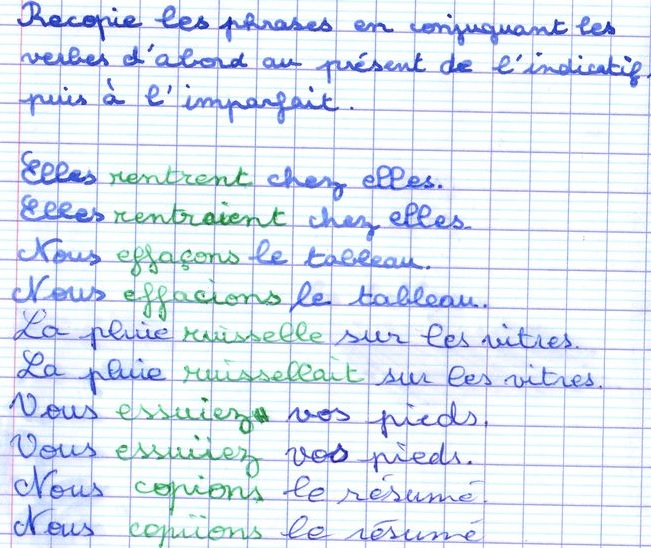 Recopie les phrases en conjuguant les
verbes d'abord au présent de l'indicatif,
puis à l'imparfait.
Elles rentrent chez elles.
Elles rentraient chez elles.
Nous effaçons le tableau.
Nous effacions le tableau.
La pluie ruisselle sur les vitres.
La pluie ruissellait sur les vitres.
Vous essuiez vos pieds.
Vous essuiiez vos pieds.
Nous copions le résumé.
Nous copiions le résumé